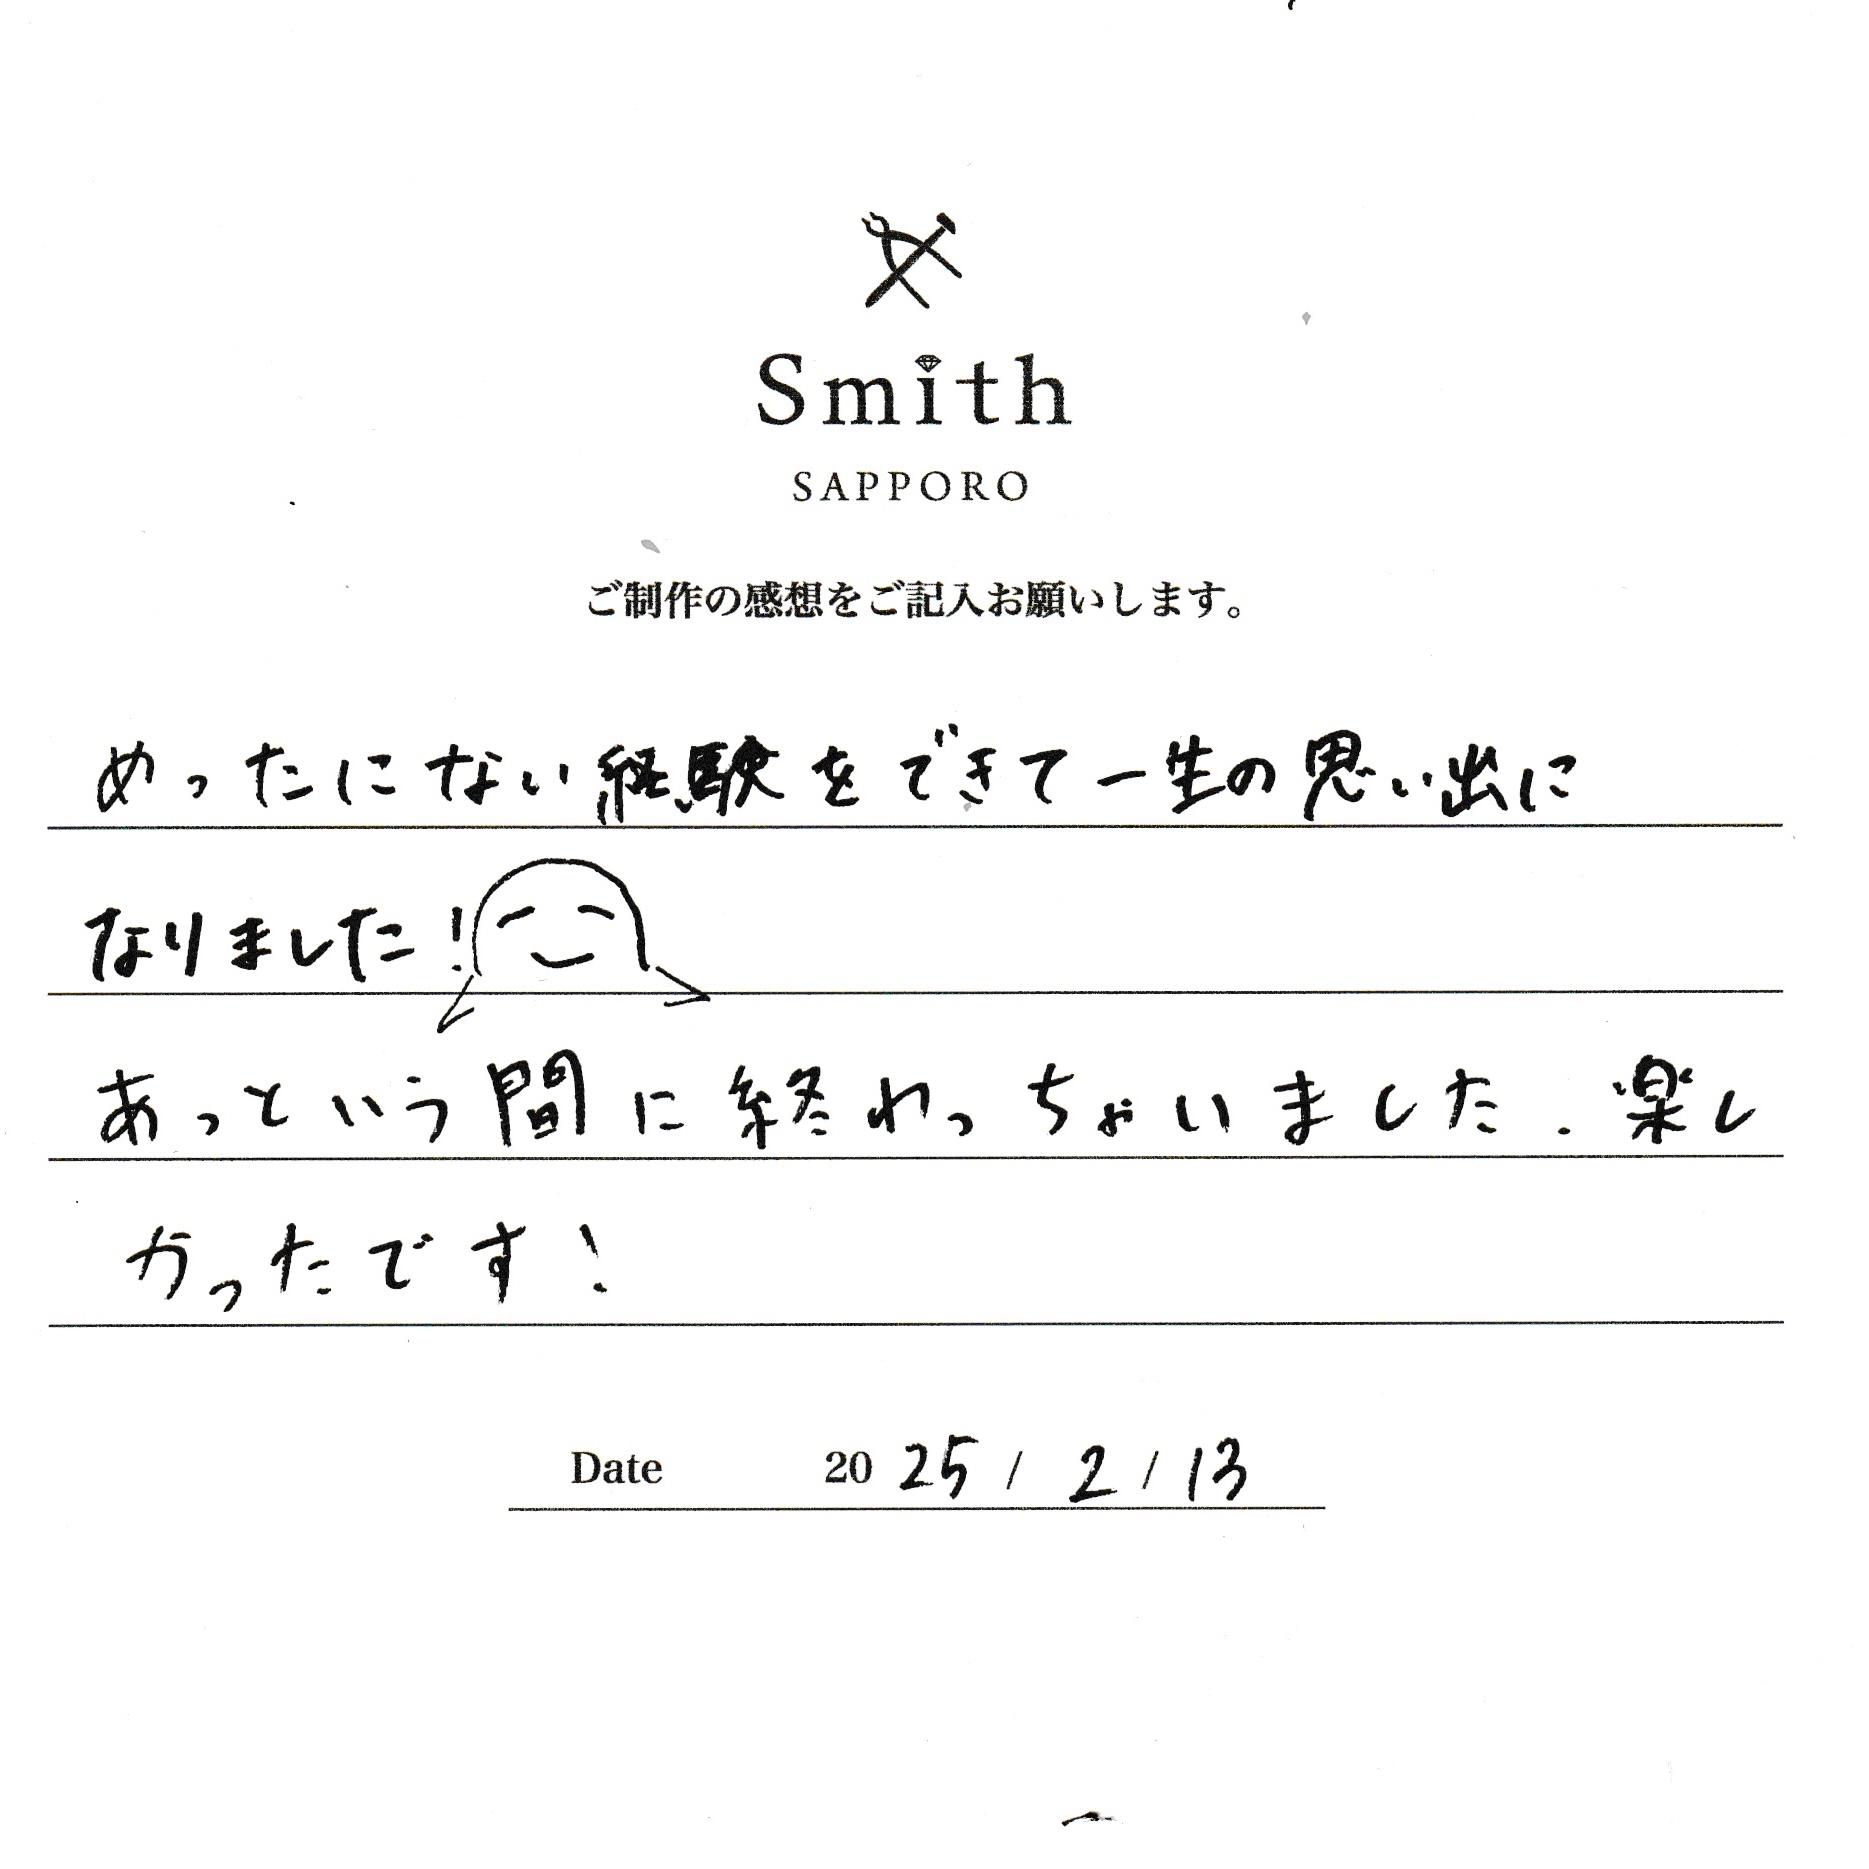 Smith
SAPPORO
ご制作の感想をご記入お願いします。
めったにない経験をできて一生の思い出に
なりました!
あっという間に終わっちゃいました.楽し
かったです!
Date 2025 / 2 / 13